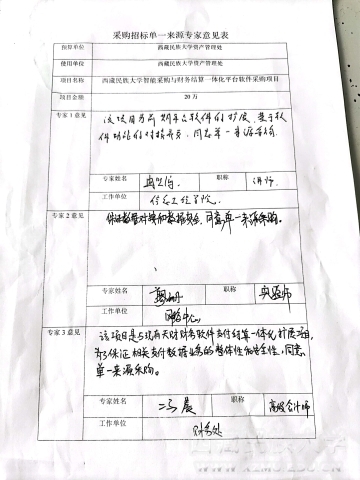 采购招标单一来源专家意见表
预算单位 西藏民族大学资产管理处
使用单位 西藏民族大学资产管理处
项目名称 西藏民族大学智能采购与财务结算一体化平台软件采购项目
项目金额 20万
专家1意见 该项目为前期平台软件的扩展,基于软
件功能的对接要求,同意单一来源采购
专家姓名 职称 讲师
工作单位 信息工程学院
专家2意见 保证数据对接和数据安全,可 单一来源采购。
专家姓名 职称 实验师
工作单位 网络中心
专家3意见 该项目是与现有天财财务软件支付结算一体化扩展项目,
为了保证相关支付数据业务的整体性和安全性,同意
单一来源采购。
专家姓名 冯晨 职称 高级会计师
工作单位 财务处